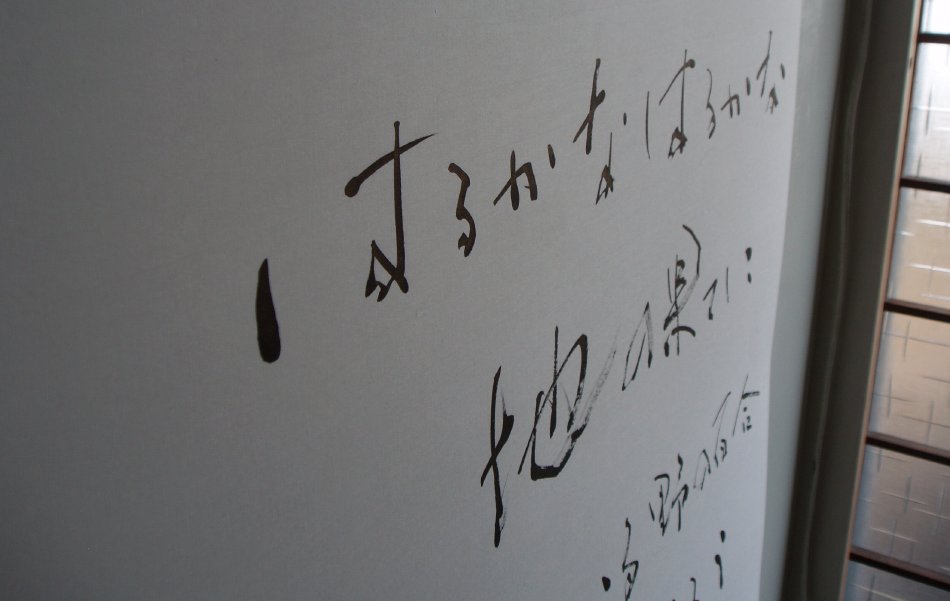 はるかなはるかな
地の果てに
野の百合